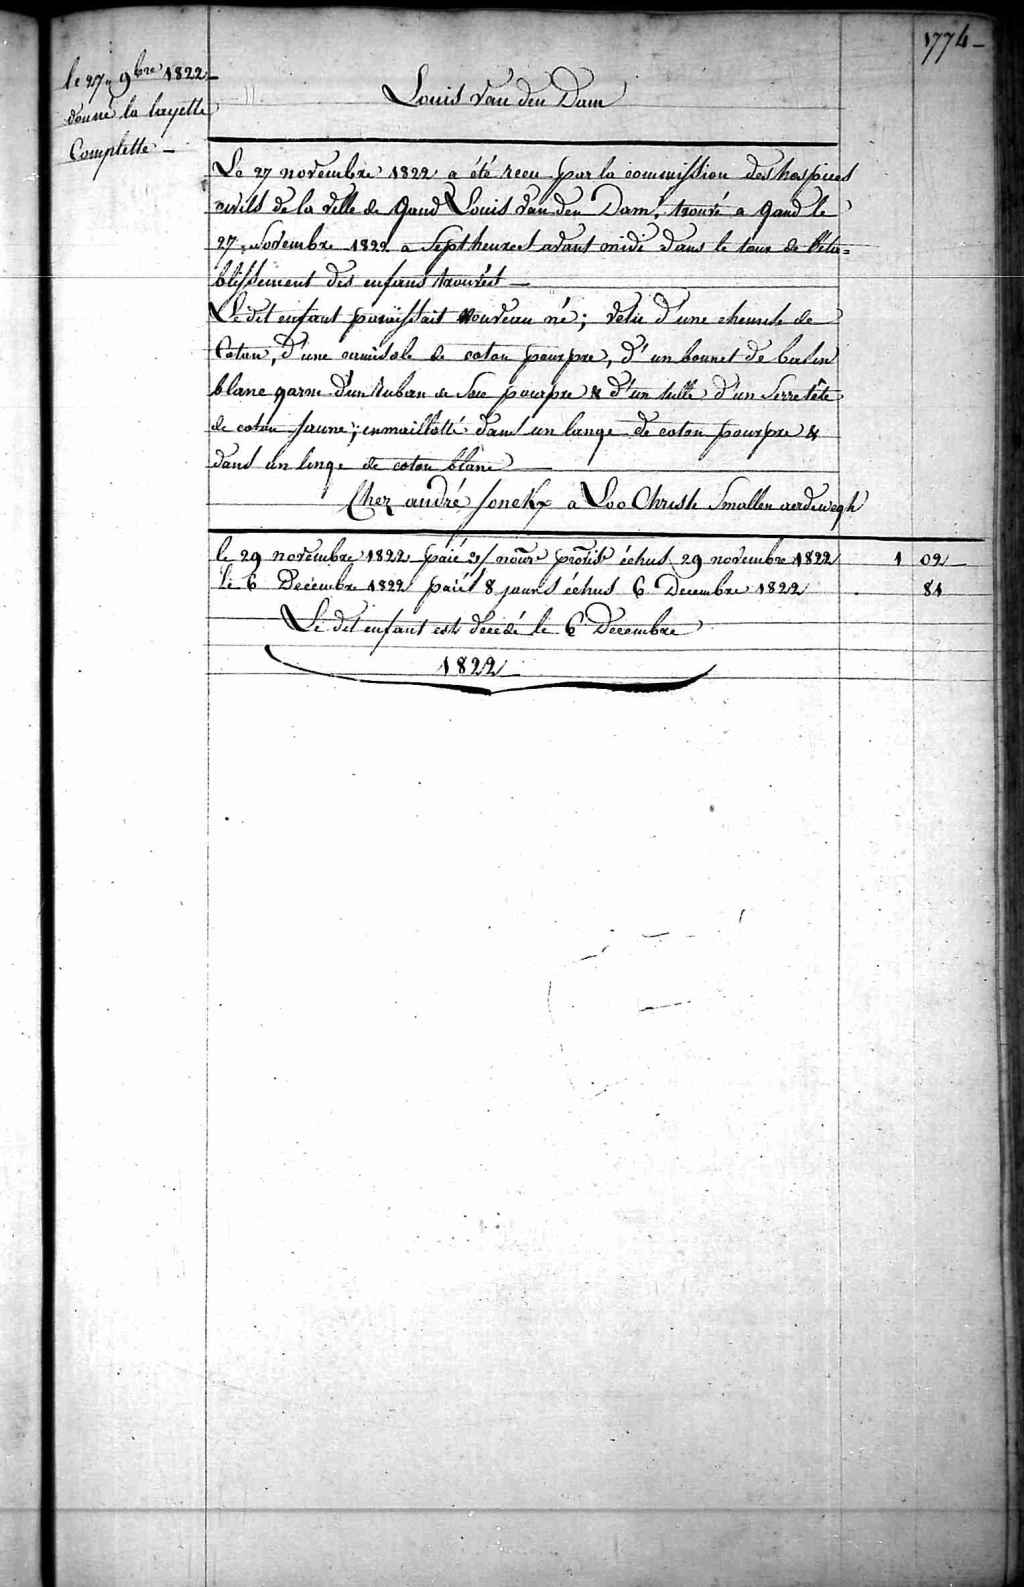 1774-
le 27 9bre 1822
donné la layette
Complette -
Louis Van den Dam
Le 27 novembre 1822 a été recu par la commission des hospices
civils de la ville de Gand Louis Van den Dam, trouvé a Gand le
27 Novembre 1822 a Sept heures avant midi dans le tour de l'éta=
blissement des enfans trouvés -
Le dit enfant paraissait nouveau né; vétu d'une chemise de
Coton, d'une camisole de coton pourpre, d'un bonnet de basin
blanc garni d'un Ruban de Soie pourpre & d'un tulle d'un Serre tête
de coton Jaune; enmaillotté dans un lange de coton pourpre &
dans un linge de coton blanc -
Chez andré Sonckx a Loo Christi Smallen aerdewegh
le 29 novembre 1822 paié échus 29 novembre 1822 1 02
le 6 Decembre 1822 paié 8 jours échus 6 Decembre 1822 . 81
Le dit enfant est decedé le 6 Decembre
1822